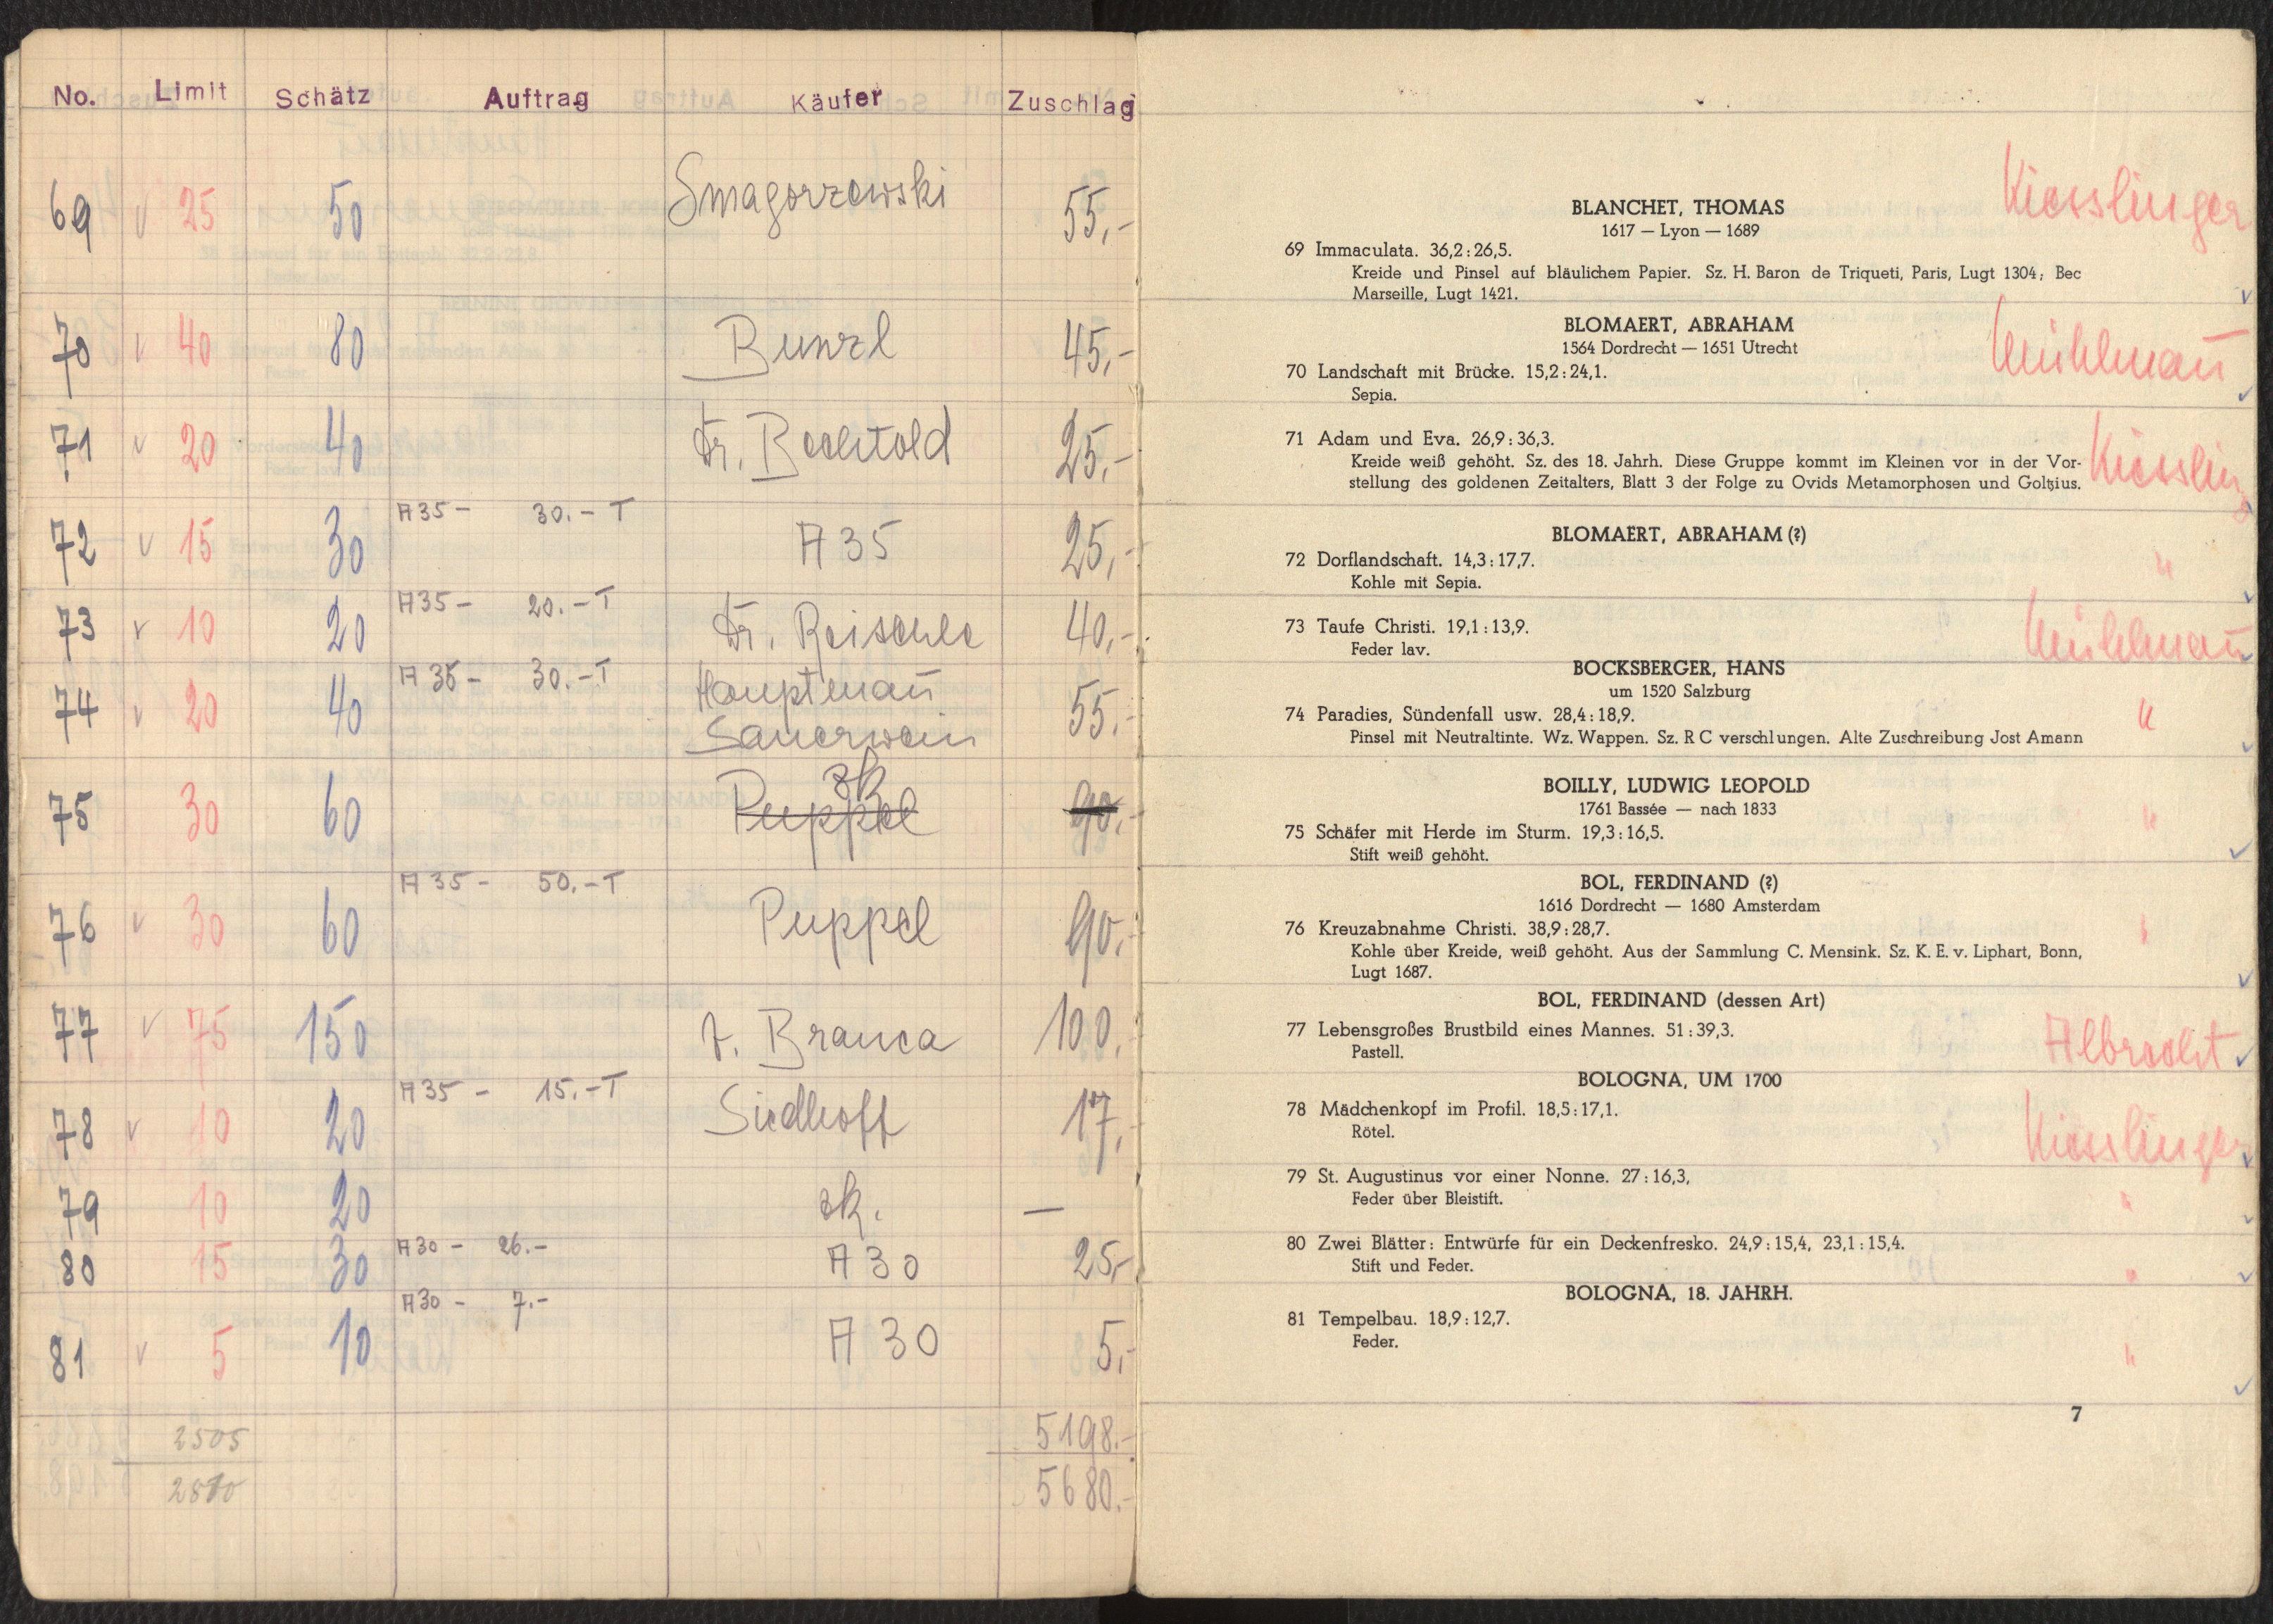 No. Limit Schätz Auftrag Käufer Zuschlag
69 v 25 50 Smagorzewski 55,-
70 v 40 80 Bunzl 45,-
71 v 20 40 Dr. Bechtold 25,-
A35 - 30.- T
72 v 15 30 A 35 25,-
A35 - 20.- T
73 v 10 20 Dr. Reischle 40,-
A 35 - 30.- T
74 v 20 40 Hauptmañ Sauerwein 55.-
75 30 60 Puppel zk 90.-
A 35 - 50.- T
76 v 30 60 Puppel 90.-
77 v 75 150 v. Branca 100.-
A35 - 15.- T
78 v 10 20 Siedhoff 17,-
79 10 20 zk. —
A30 - 26.-
80 15 30 A 30 25,-
A30 - 7.-
81 v 5 10 A 30 5,-
2505 5198.-
5680.-
BLANCHET, THOMAS
Kiesslinger
1617 — Lyon — 1689
69 Immaculata. 36,2 : 26,5.
Kreide und Pinsel auf bläulichem Papier. Sz. H. Baron de Triqueti, Paris, Lugt 1304; Bec
Marseille, Lugt 1421.
BLOMAERT, ABRAHAM
1564 Dordrecht — 1651 Utrecht
Mühlmañ
70 Landschaft mit Brücke. 15,2 : 24,1.
Sepia.
71 Adam und Eva. 26,9 : 36,3.
Kreide weiß gehöht. Sz. des 18. Jahrh. Diese Gruppe kommt im Kleinen vor in der Vor-
stellung des goldenen Zeitalters, Blatt 3 der Folge zu Ovids Metamorphosen und Goltzius.
Kiessling
BLOMAERT, ABRAHAM (?)
72 Dorflandschaft. 14,3 : 17,7.
"
Kohle mit Sepia.
73 Taufe Christi. 19,1 : 13,9.
Mühlmañ
Feder lav.
BOCKSBERGER, HANS
um 1520 Salzburg
74 Paradies, Sündenfall usw. 28,4 : 18,9.
"
Pinsel mit Neutraltinte. Wz. Wappen. Sz. R C verschlungen. Alte Zuschreibung Jost Amann
BOILLY, LUDWIG LEOPOLD
1761 Bassée — nach 1833
"
75 Schäfer mit Herde im Sturm. 19,3 : 16,5.
Stift weiß gehöht.
BOL, FERDINAND (?)
1616 Dordrecht — 1680 Amsterdam
76 Kreuzabnahme Christi. 38,9 : 28,7.
"
Kohle über Kreide, weiß gehöht. Aus der Sammlung C. Mensink. Sz. K. E. v. Liphart, Bonn,
Lugt 1687.
BOL, FERDINAND (dessen Art)
77 Lebensgroßes Brustbild eines Mannes. 51 : 39,3.
Albrecht
Pastell.
BOLOGNA, UM 1700
78 Mädchenkopf im Profil. 18,5 : 17,1.
Kiesslinger
Rötel.
79 St. Augustinus vor einer Nonne. 27 : 16,3,
"
Feder über Bleistift.
80 Zwei Blätter: Entwürfe für ein Deckenfresko. 24,9 : 15,4, 23,1 : 15,4.
"
Stift und Feder.
BOLOGNA, 18. JAHRH.
81 Tempelbau. 18,9 : 12,7.
"
Feder.
7